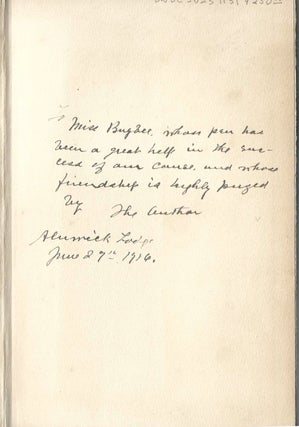 To Miss Bugbee, whose pen has
been a great help in the suc-
cess of our Cause, and whose
friendship is highly prized
by The Author
Alnwick Lodge
June 27th 1916.